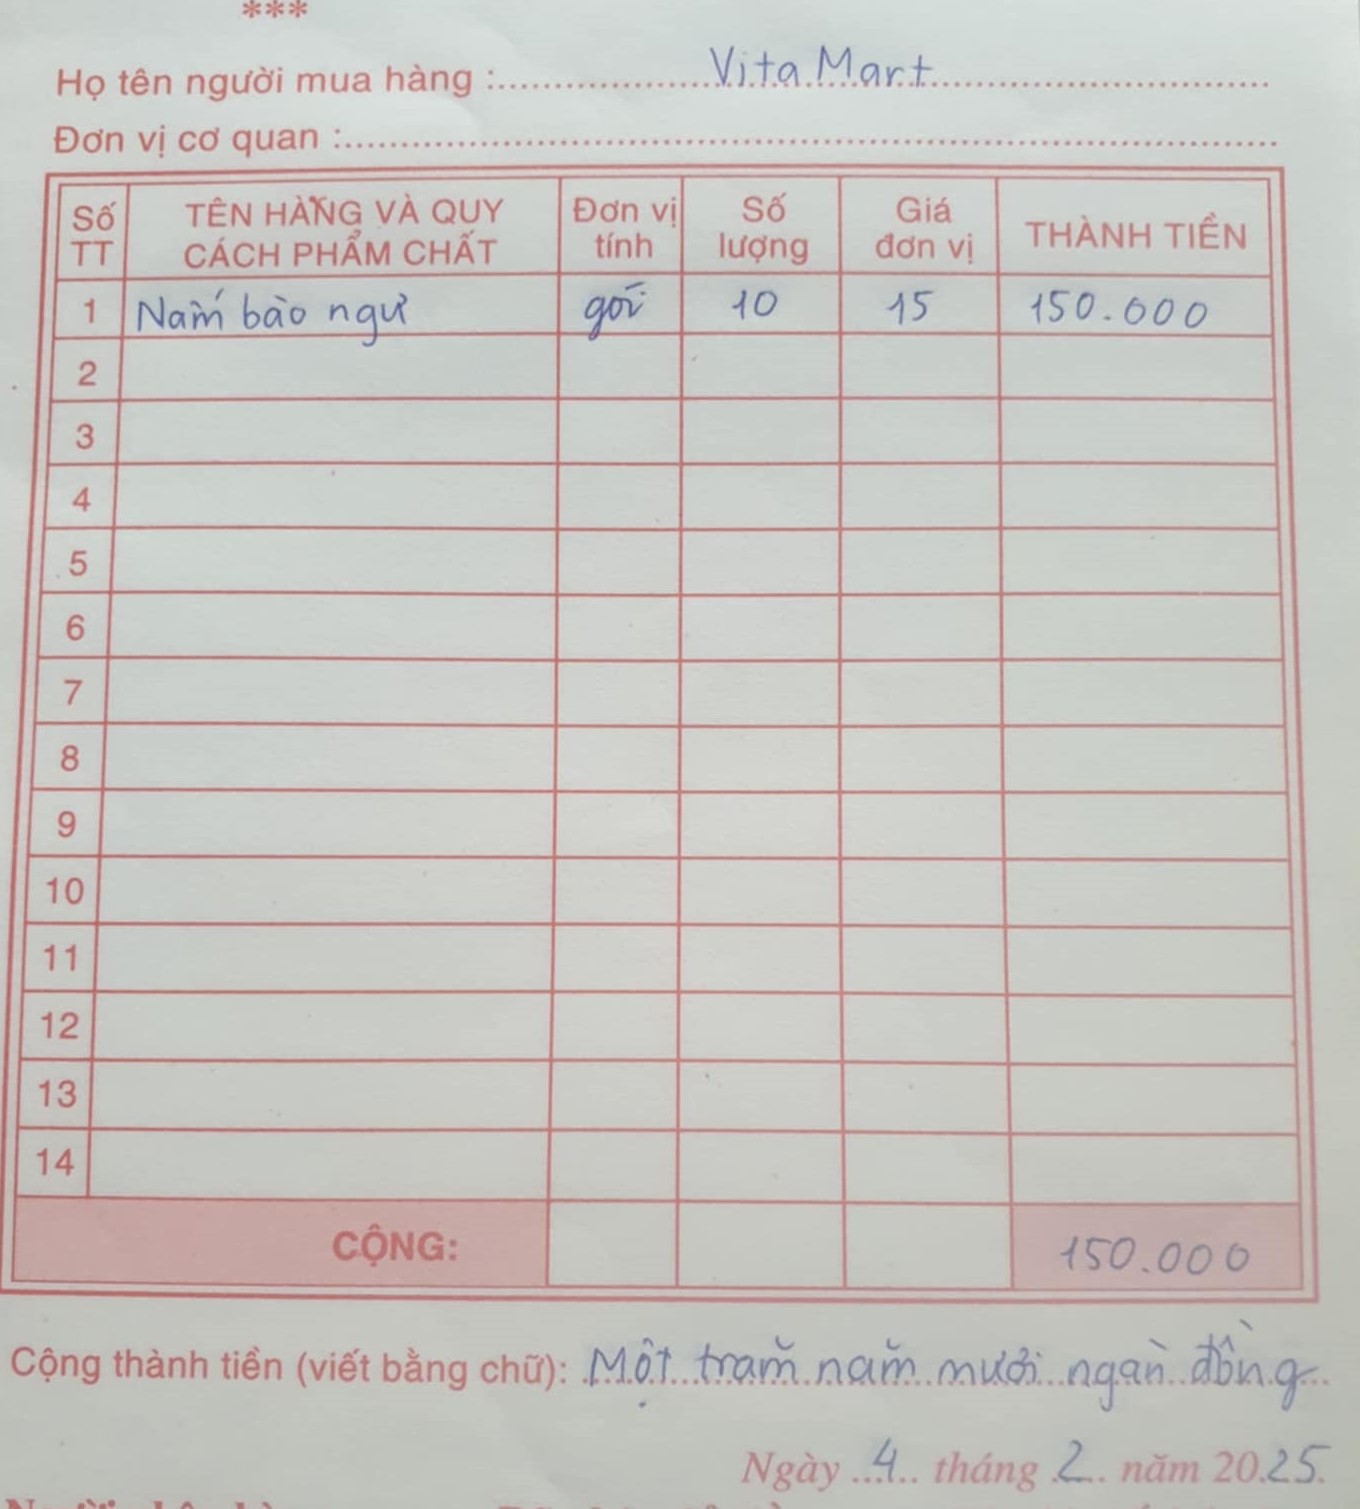 ***
Họ tên người mua hàng :..........Vita Mart..........
Đơn vị cơ quan :..........
Số TT TÊN HÀNG VÀ QUY CÁCH PHẨM CHẤT Đơn vị tính Số lượng Giá đơn vị THÀNH TIỀN
1 Nấm bào ngư gói 10 15 150.000
2
3
4
5
6
7
8
9
10
11
12
13
14
CỘNG: 150.000
Cộng thành tiền (viết bằng chữ): Một trăm năm mươi ngàn đồng
Ngày 4 tháng 2 năm 2025